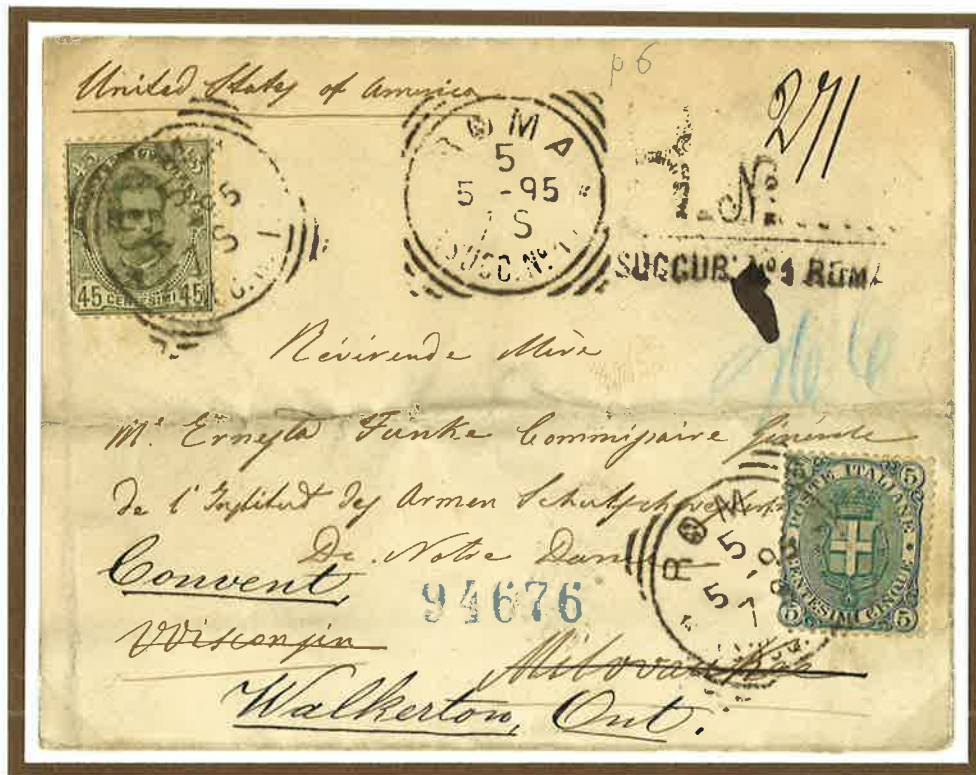 p6
United States of America
271
ROMA
5
5 -95
7 S
SUCC. Nº 1
Nº
SUCCUR. Nº 1 ROMA
45 CENTESIMI 45
Révirende Mère
Mre Ernesta Funke Commissaire Générale
de l'Institut des Armen Schulschwestern
De Notre Dame
Convent,
94676
Wisconsin
Milovaukee
Walkerton, Ont.
ROM
5
5
7
5 POSTE ITALIANE 5
5 CENTESIMI CINQUE 5